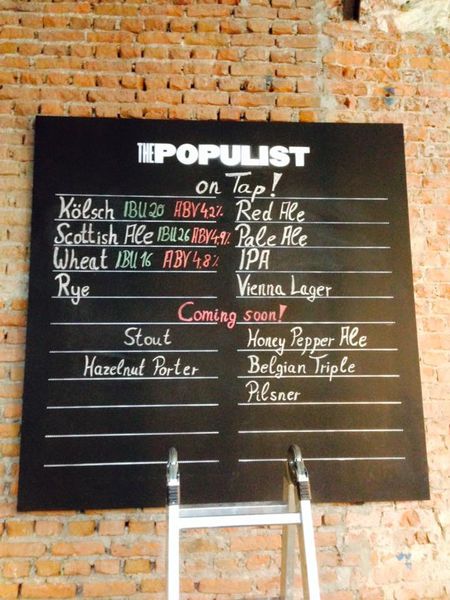 THE POPULIST
on Tap!
Kölsch IBU 20 ABV 4.2%
Scottish Ale IBU 26 ABV 4.9%
Wheat IBU 16 ABV 4.8%
Rye
Red Ale
Pale Ale
IPA
Vienna Lager
Coming soon!
Stout
Hazelnut Porter
Honey Pepper Ale
Belgian Triple
Pilsner